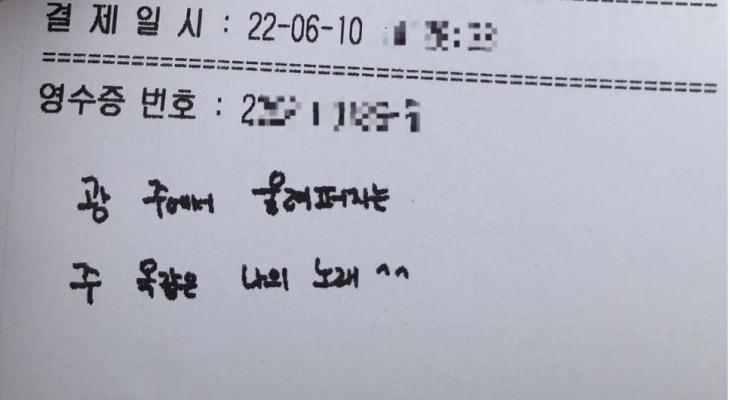 결 제 일 시 : 22-06-10
==================================================
영수증 번호 :
광 주에서 울려퍼지는
주 옥같은 나의 노래 ^^